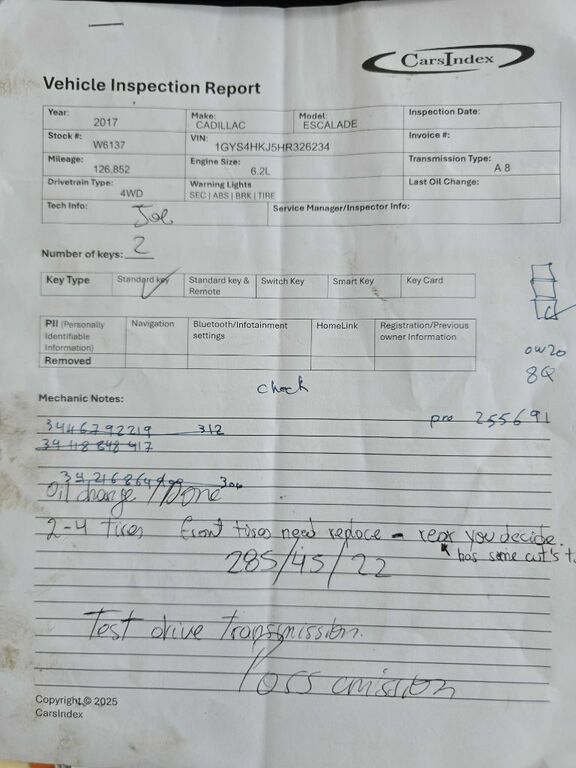 CarsIndex
Vehicle Inspection Report
Year: 2017 Make: CADILLAC Model: ESCALADE Inspection Date:
Stock #: W6137 VIN: 1GYS4HKJ5HR326234 Invoice #:
Mileage: 126,852 Engine Size: 6.2L Transmission Type: A 8
Drivetrain Type: 4WD Warning Lights SEC | ABS | BRK | TIRE Last Oil Change:
Tech Info: Joe Service Manager/Inspector Info:
Number of keys: 2
Key Type Standard key Standard key & Remote Switch Key Smart Key Key Card
PII (Personally Identifiable Information) Navigation Bluetooth/Infotainment settings HomeLink Registration/Previous owner Information
Removed
0W20
8Q
check
Mechanic Notes:
pro 255691
34467 92219 312
Oil change / Done
2-4 tires front tires need replace - rear you decide.
has some cut's
285/45/22
Test drive transmission.
Copyright © 2025
CarsIndex